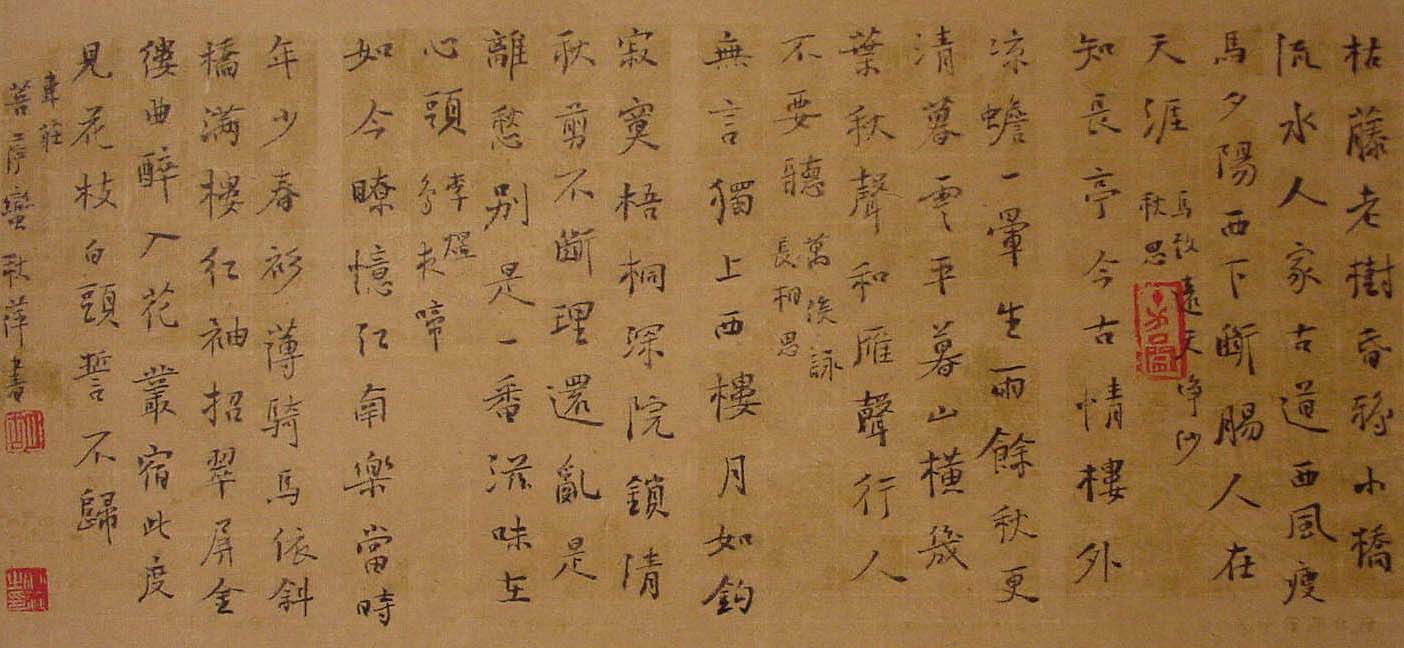 枯藤老樹昏鴉小橋
流水人家古道西風瘦
馬夕陽西下斷腸人在
天涯
馬致遠天净沙
秋思
知長亭今古情樓外
凉蟾一暈生雨餘秋更
清暮雲平暮山橫幾
葉秋聲和雁聲行人
不要聽
萬俟詠
長相思
無言獨上西樓月如鈎
寂寞梧桐深院鎖清
秋剪不斷理還亂是
離愁別是一番滋味在
心頭
李煜
烏夜啼
如今瞭憶江南樂當時
年少春衫薄騎馬依斜
橋滿樓紅袖招翠屏金
縷曲醉入花叢宿此度
見花枝白頭誓不歸
韋莊
菩薩蠻秋萍書